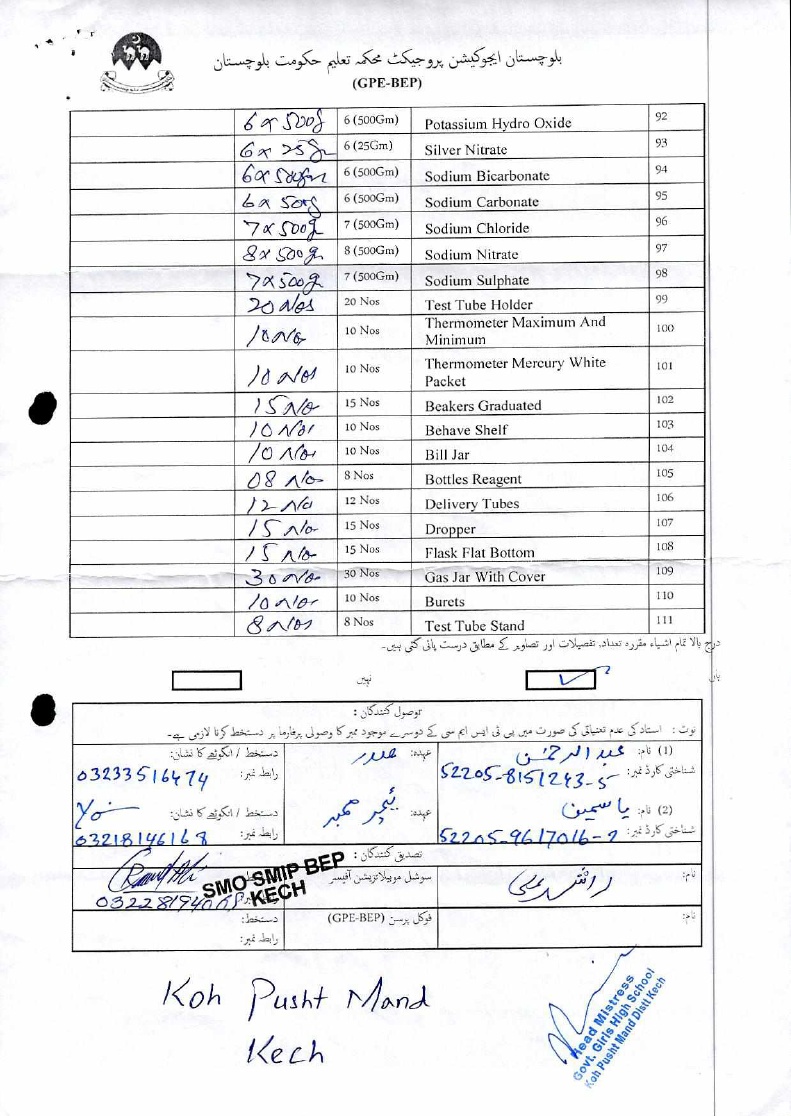 بلوچستان ایجوکیشن پروجیکٹ محکمہ تعلیم حکومت بلوچستان
(GPE-BEP)
6 x 500g 6 (500Gm) Potassium Hydro Oxide 92
6 x 25g 6 (25Gm) Silver Nitrate 93
6 x 500gm 6 (500Gm) Sodium Bicarbonate 94
6 x 500g 6 (500Gm) Sodium Carbonate 95
7 x 500g 7 (500Gm) Sodium Chloride 96
8 x 500g 8 (500Gm) Sodium Nitrate 97
7 x 500g 7 (500Gm) Sodium Sulphate 98
20 Nos 20 Nos Test Tube Holder 99
10 No 10 Nos Thermometer Maximum And Minimum 100
10 Nos 10 Nos Thermometer Mercury White Packet 101
15 No 15 Nos Beakers Graduated 102
10 Nos 10 Nos Behave Shelf 103
10 Nos 10 Nos Bill Jar 104
08 No 8 Nos Bottles Reagent 105
12 No 12 Nos Delivery Tubes 106
15 No 15 Nos Dropper 107
15 No 15 Nos Flask Flat Bottom 108
30 No 30 Nos Gas Jar With Cover 109
10 No 10 Nos Burets 110
8 Nos 8 Nos Test Tube Stand 111
درج بالا تمام اشیاء مقررہ تعداد، تفصیلات اور تصاویر کے مطابق درست پائی گئی ہیں۔
ہاں ✓ نہیں
وصول کنندگان :
نوٹ : استاد کی عدم تعیناتی کی صورت میں پی ٹی ایس ایم سی کے دوسرے موجود ممبر کا وصولی پرفارما پر دستخط کرنا لازمی ہے۔
(1) نام: عبدالرحمٰن عہدہ: صدر دستخط / انگوٹھے کا نشان:
شناختی کارڈ نمبر: 52205-8151243-5 رابطہ نمبر: 03233516474
(2) نام: یاسمین عہدہ: ٹیچر ممبر دستخط / انگوٹھے کا نشان:
شناختی کارڈ نمبر: 52205-9617016-2 رابطہ نمبر: 03218146168
تصدیق کنندگان :
نام: راشد علی سوشل موبیلائزیشن آفیسر
SMO SMIP BEP
KECH
نام: فوکل پرسن (GPE-BEP) دستخط:
رابطہ نمبر:
Koh Pusht Mand
Kech
Head Mistress
Govt. Girls High School
Koh Pusht Mand Distt Kech